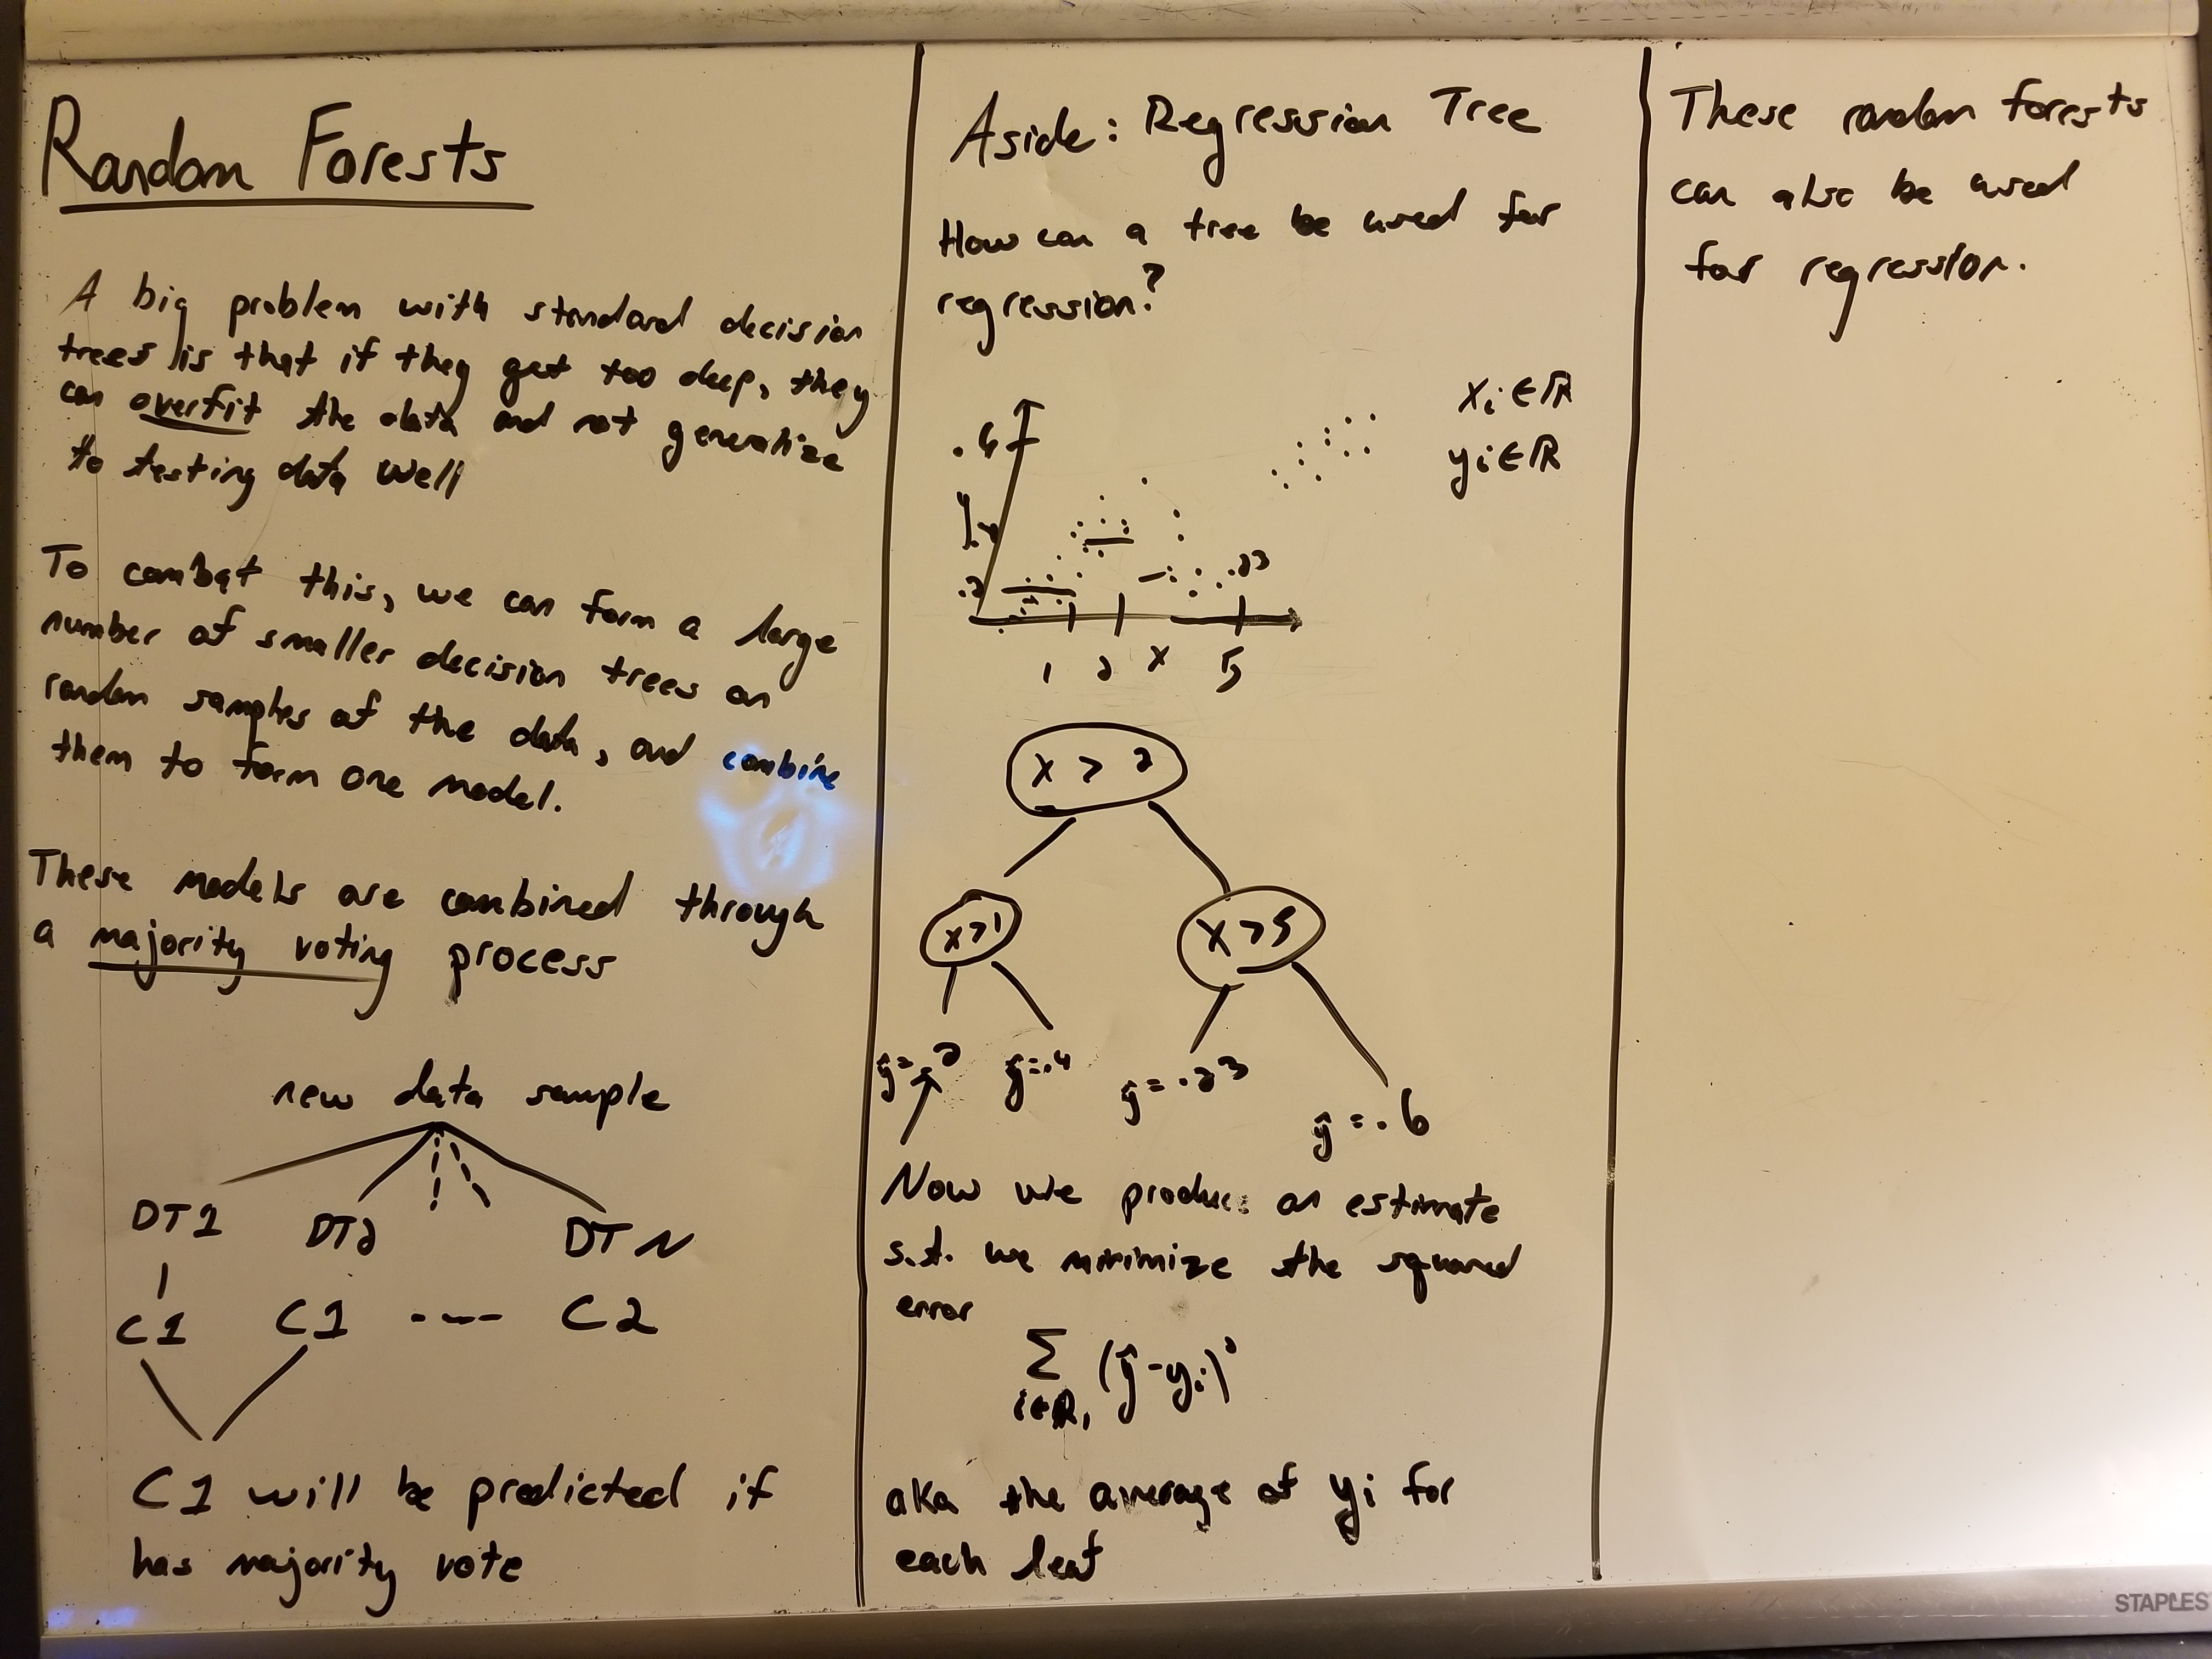 Random Forests
A big problem with standard decision
trees is that if they get too deep, they
can overfit the data and not generalize
to testing data well
To combat this, we can form a large
number of smaller decision trees on
random samples of the data, and combine
them to form one model.
These models are combined through
a majority voting process
new data sample
DT1 DT2 DT N
C1 C1 ---- C2
C1 will be predicted if
has majority vote
Aside: Regression Tree
How can a tree be used for
regression?
xi ∈ ℝ
yi ∈ ℝ
.6
.4
.2
.23
1 2 x 5
x > 2
x > 1 x > 5
ŷ = .2 ŷ = .4 ŷ = .23 ŷ = .6
Now we produce an estimate
s.t. we minimize the squared
error
Σ (ŷ - yi)²
i∈R1
aka the average of yi for
each leaf
These random forests
can also be used
for regression.
STAPLES